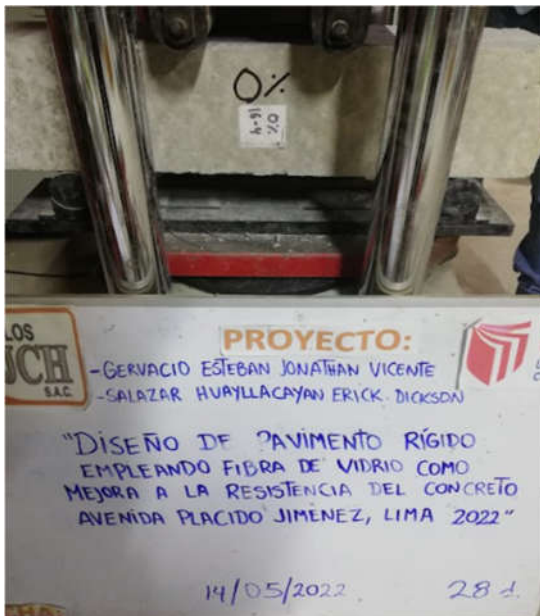 0%
0%
16-4
LOS
UCH
S.A.C.
PROYECTO:
-GERVACIO ESTEBAN JONATHAN VICENTE
-SALAZAR HUAYLLACAYAN ERICK DICKSON
"DISEÑO DE PAVIMENTO RÍGIDO
EMPLEANDO FIBRA DE VIDRIO COMO
MEJORA A LA RESISTENCIA DEL CONCRETO
AVENIDA PLACIDO JIMENEZ, LIMA 2022"
14/05/2022 28 d.